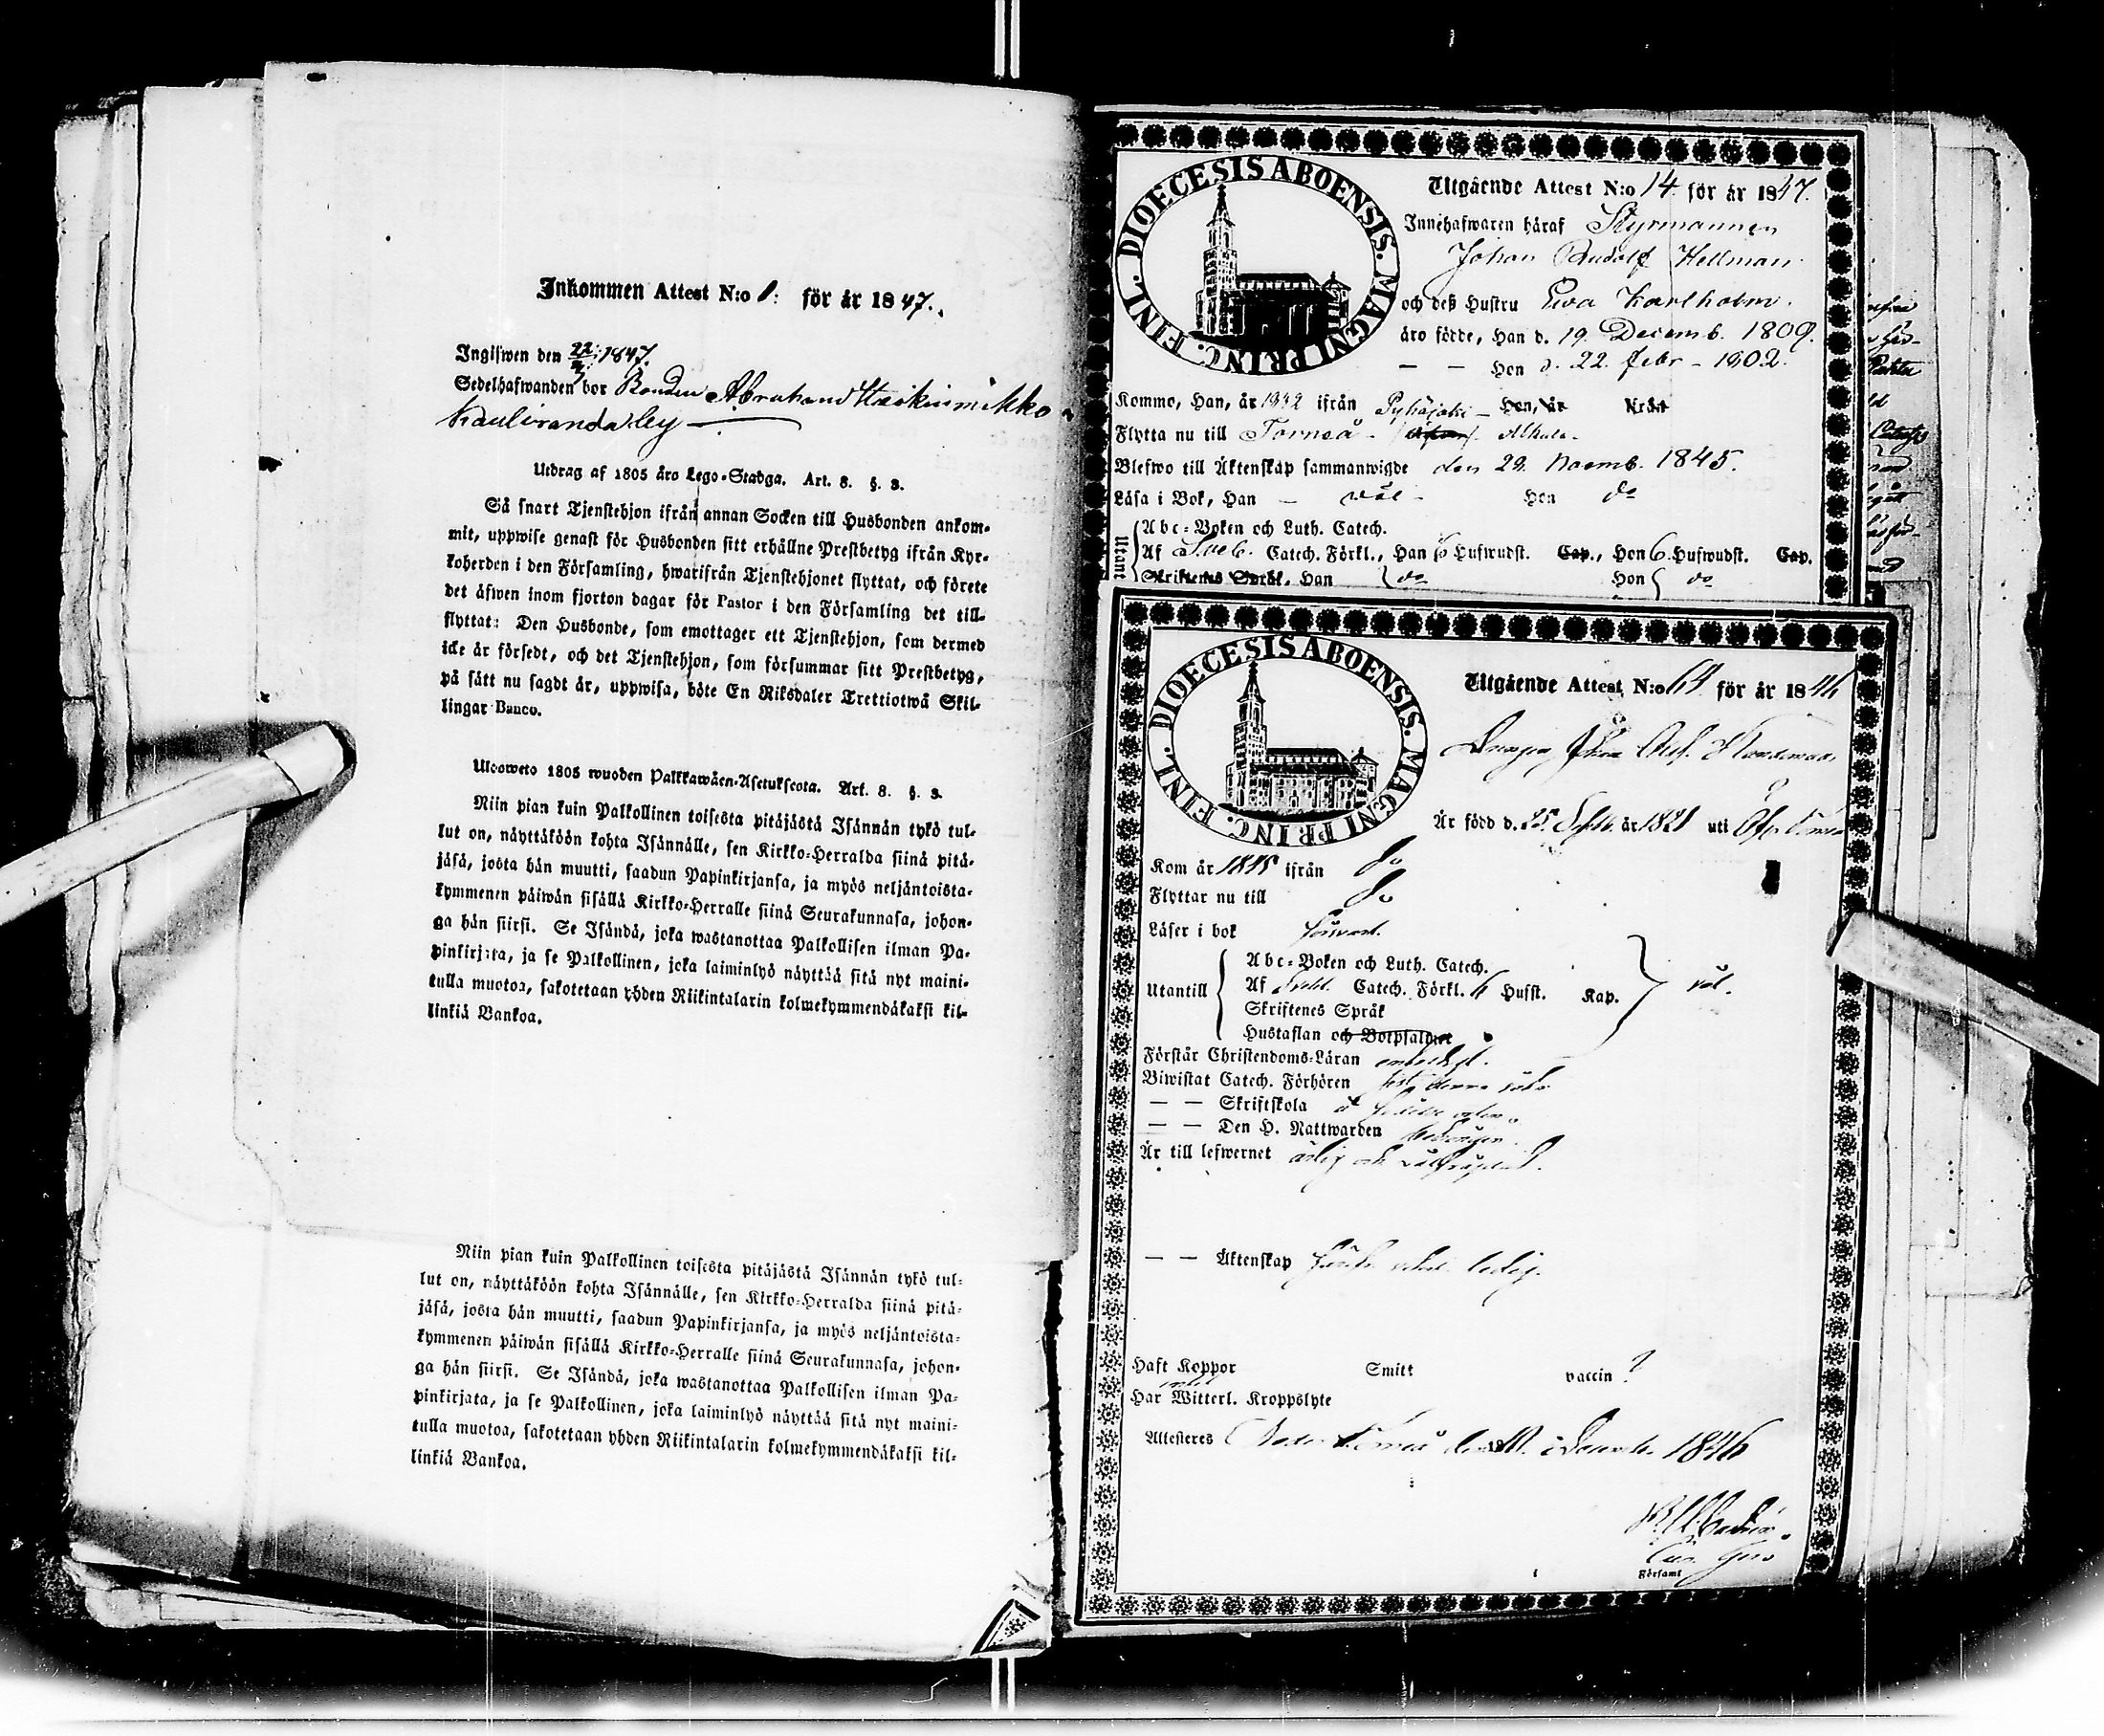 Inkommen Attest N:o 1: för år 1847.
Ingifwen den 22 1847.
Sedelhafwanden bor Bonden Abraham Heikinmikko
Utdrag af 1805 års Lego-Stadga. Art. 8. §. 3.
Så snart Tjenstehjon ifrån annan Socken till Husbonden ankom-
mit, uppwise genast för Husbonden sitt erhållne Prestbetyg ifrån Kyr-
koherden i den Församling, hwarifrån Tjenstehjonet flyttat, och förete
det äfwen inom fjorton dagar för Pastor i den Församling det till-
flyttat: Den Husbonde, som emottager ett Tjenstehjon, som dermed
icke är försedt, och det Tjenstehjon, som försummar sitt Prestbetyg,
på sätt nu sagdt är, uppwisa, böte En Riksdaler Trettiotwå Skil-
lingar Banco.
Ulosweto 1805 wuoden Palkkawäen-Asetuksesta. Art. 8. §. 3.
Niin pian kuin Palkollinen toisesta pitäjästä Isännän tykö tul-
lut on, näyttäköön kohta Isännälle, sen Kirkko-Herralda siinä pitä-
jäsä, josta hän muutti, saadun Papinkirjansa, ja myös neljäntoista-
kymmenen päiwän sisällä Kirkko-Herralle siinä Seurakunnasa, johon-
ga hän siirsi. Se Isändä, joka wastanottaa Palkollisen ilman Pa-
pinkirjata, ja se Palkollinen, joka laiminlyö näyttää sitä nyt maini-
tulla muotoa, sakotetaan yhden Riikintalarin kolmekymmendäkaksi kil-
linkiä Bankoa.
Niin pian kuin Palkollinen toisesta pitäjästä Isännän tykö tul-
lut on, näyttäköön kohta Isännälle, sen Kirkko-Herralda siinä pitä-
jäsä, josta hän muutti, saadun Papinkirjansa, ja myös neljäntoista-
kymmenen päiwän sisällä Kirkko-Herralle siinä Seurakunnasa, johon-
ga hän siirsi. Se Isändä, joka wastanottaa Palkollisen ilman Pa-
pinkirjata, ja se Palkollinen, joka laiminlyö näyttää sitä nyt maini-
tulla muotoa, sakotetaan yhden Riikintalarin kolmekymmendäkaksi kil-
linkiä Bankoa.
DIOECESIS ABOENSIS. MAGNI PRINC. FINL.
Utgående Attest N:o 14 för år 1847.
Innehafwaren häraf Styrmannen
Johan Rudolf Hellman
och deß Hustru Ewa Karlholm.
äro födde, Han d. 19. Decemb. 1809.
— — Hon d. 22. febr. 1802.
Kommo, Han, år 1842 ifrån Pyhäjoki — Hon, år ifrån
Flytta nu till Torneå
Blefwo till Äktenskap sammanwigde den 29. Novemb. 1845.
Läsa i Bok, Han — väl — Hon do
Utant
Abc-Boken och Luth. Catech.
Af Sveb. Catech. Förkl., Han 6 Hufwudst. Cap., Hon 6 Hufwudst. Cap.
Skriftenes Språk, Han do Hon do
DIOECESIS ABOENSIS. MAGNI PRINC. FINL.
Utgående Attest N:o 64 för år 1846
Drengen Johan
Är född d. 25. Sept. år 1821 uti Öfver Torneå
Kom år 1845 ifrån do
Flyttar nu till do
Läser i bok försvarl.
Utantill
Abc-Boken och Luth. Catech.
Af Sveb. Catech. Förkl. 6 Hufst. Kap.
Skriftenes Språk
Hustaflan och Botpsalmer
väl.
Förstår Christendoms-Läran enkelt.
Biwistat Catech. Förhören
— — Skriftskola
— — Den H. Nattwarden
Är till lefwernet ärlig och
— — Äktenskap ledig.
Haft Koppor Smitt vaccin?
Har Witterl. Kroppslyte intet
Attesteras Neder Torneå den i December 1846
Församl